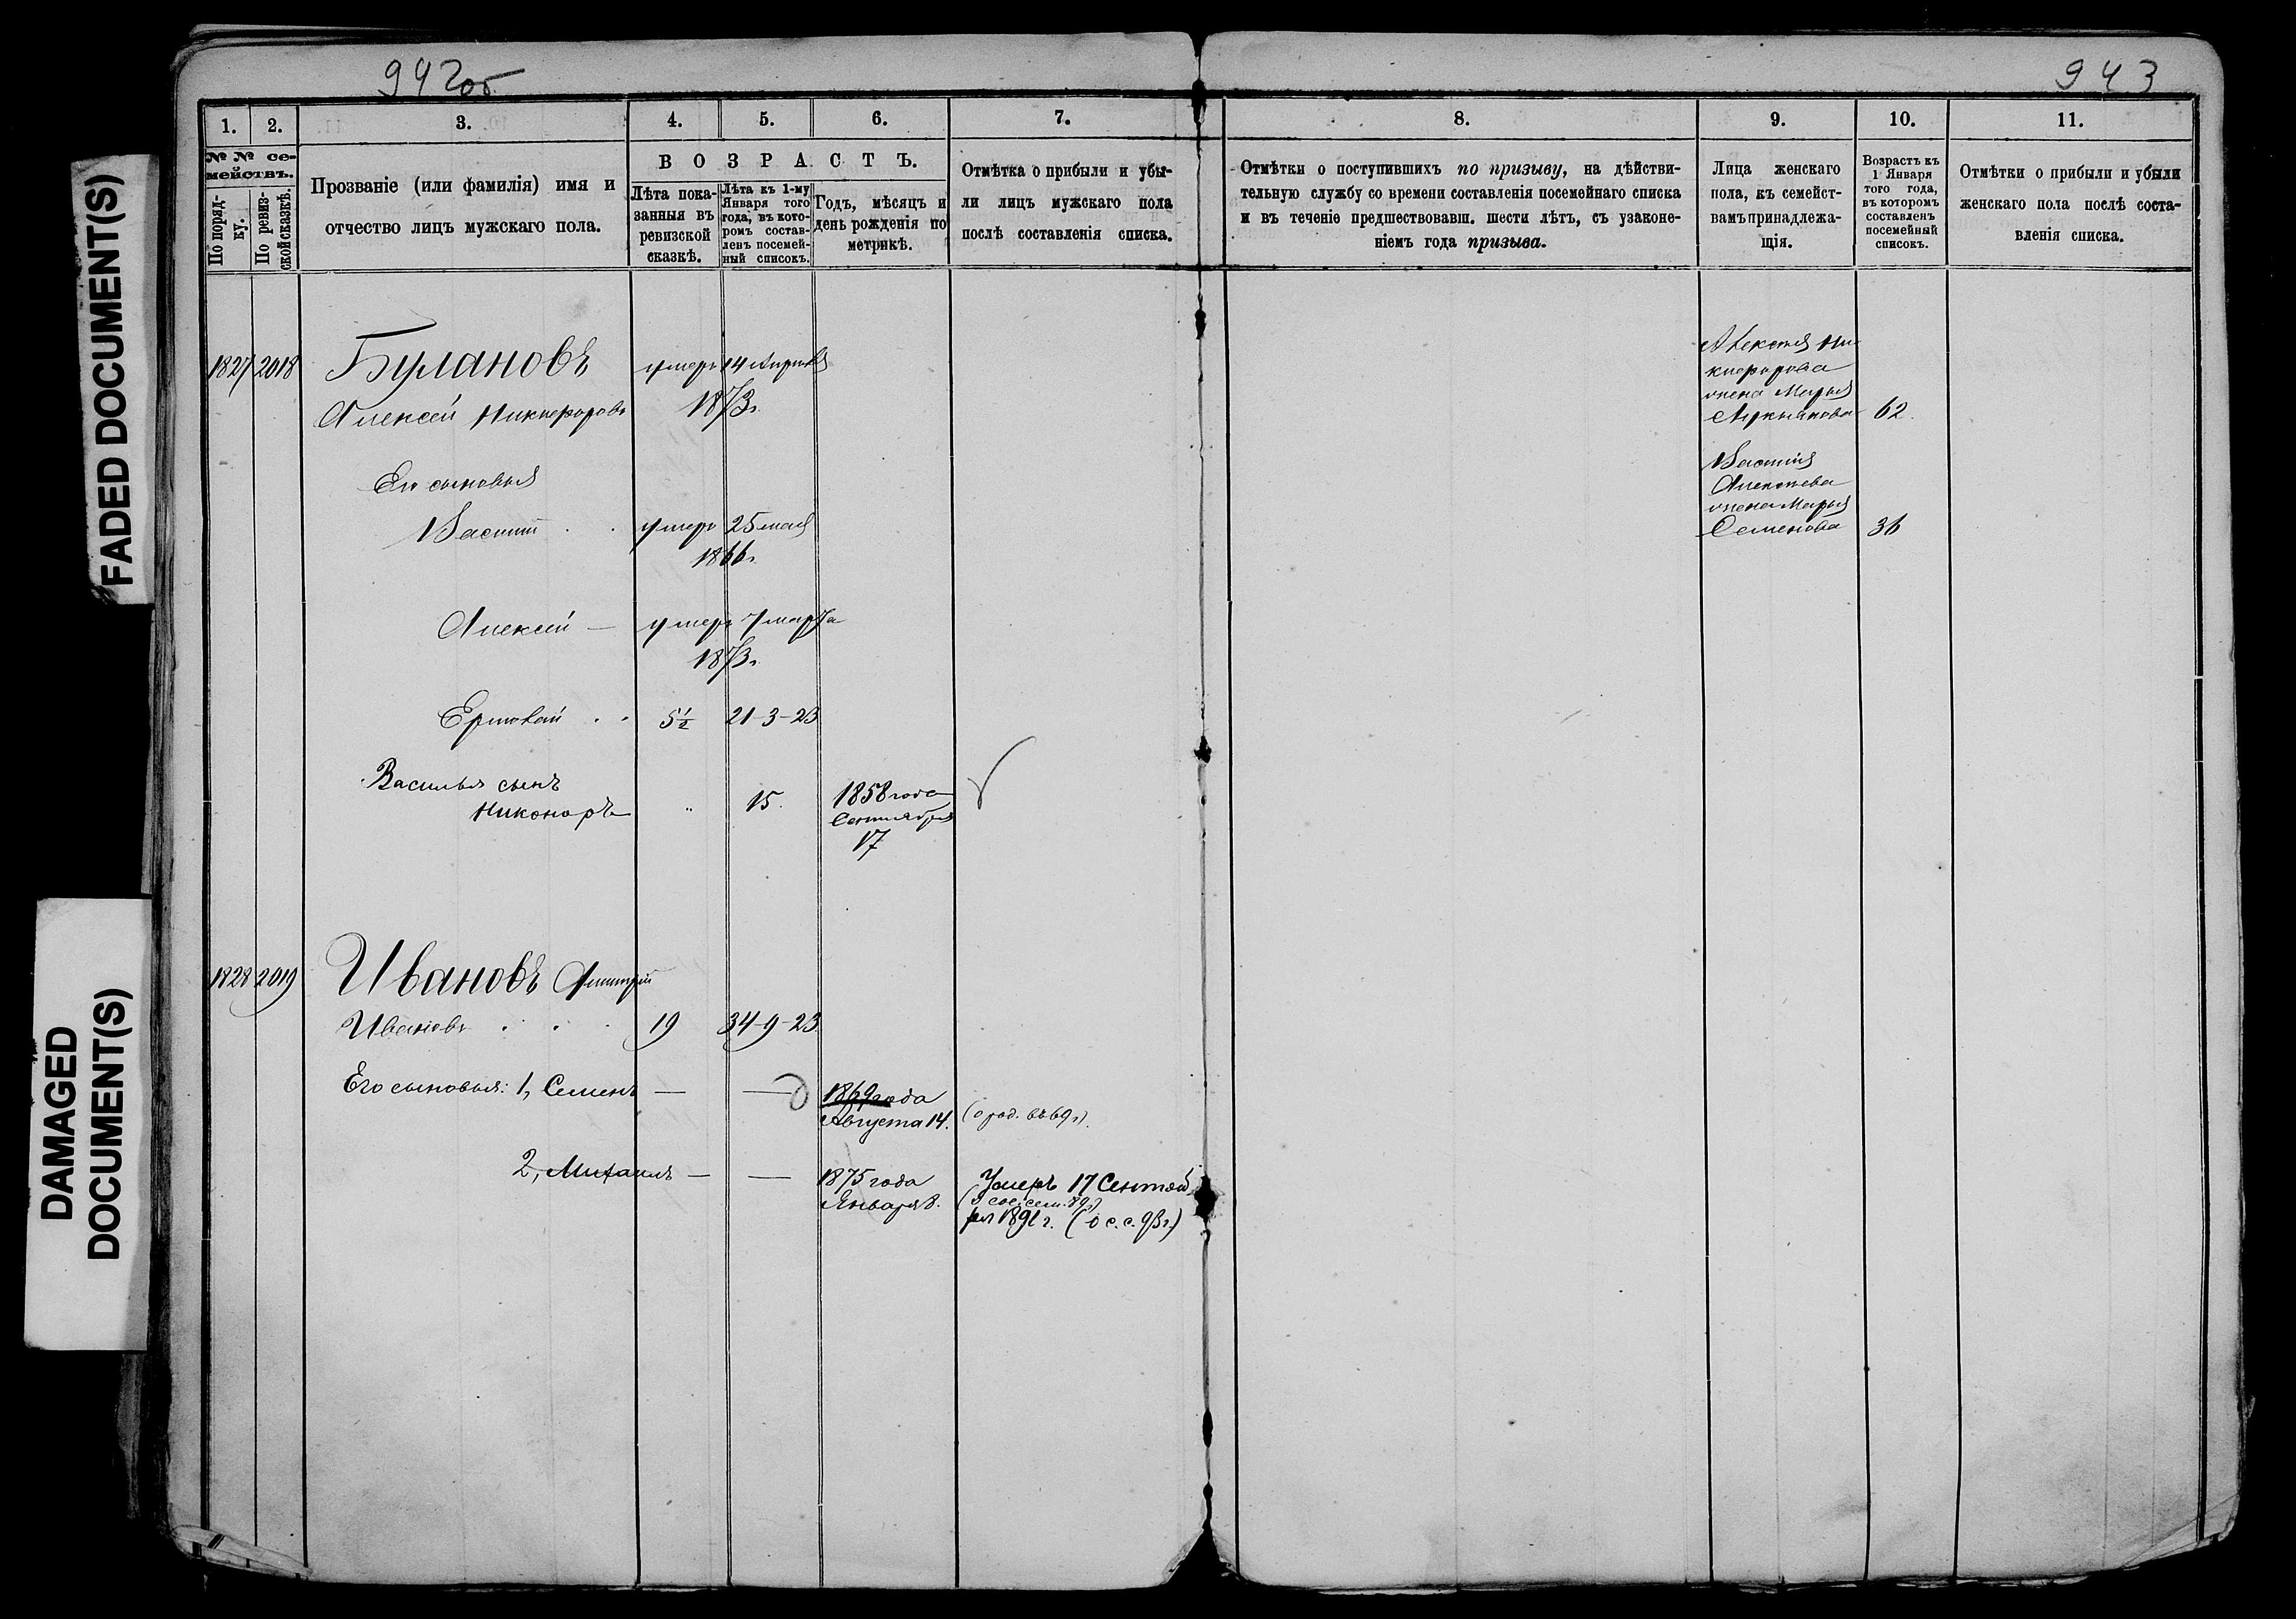 942 об.
943
FADED DOCUMENT(S)
DAMAGED
DOCUMENT(S)
1.
2.
3.
4.
5.
6.
7.
8.
9.
10.
11.
№ № се-
мействъ.
По поряд-
ку.
По ревиз-
ской сказкѣ.
Прозваніе (или фамилія) имя и
отчество лицъ мужскаго пола.
ВОЗРАСТЪ.
Лѣта пока-
занныя въ
ревизской
сказкѣ.
Лѣта къ 1-му
Января того
года, въ кото-
ромъ состав-
ленъ посемей-
ный списокъ.
Годъ, мѣсяцъ и
день рожденія по
метрикѣ.
Отмѣтка о прибыли и убы-
ли лицъ мужскаго пола
послѣ составленія списка.
Отмѣтки о поступившихъ по призыву, на дѣйстви-
тельную службу со времени составленія посемейнаго списка
и въ теченіе предшествовавш. шести лѣтъ, съ узаконе-
ніемъ года призыва.
Лица женскаго
пола, къ семейст-
вамъ принадлежа-
щія.
Возрастъ къ
1 Января
того года,
въ которомъ
составленъ
посемейный
списокъ.
Отмѣтки о прибыли и убыли
женскаго пола послѣ соста-
вленія списка.
1827 2018 Булановъ умеръ 14 Апрѣля
Алексей Никифоровъ 1873г.
Его сыновья
Василий умеръ 25 мая
1866г.
Алексей — умеръ 7 марта
1873г.
Ермолай 5½ 21-3-23
Василья сынъ
Никоноръ " 15. 1858 года
Сентября
17
Алексея Ни-
кифорова
жена Марья
62.
Василия
Алексеева
жена Марья
Семенова 36
1828 2019 Ивановъ Дмитрий
Ивановъ 19 34-9-23
Его сыновья: 1, Семенъ — — 1869 года
Августа 14. (о род. въ 69 г.).
2, Михаилъ — — 1875 года
Января 8.
Умеръ 17 Сентяб
ря 1891 г. (о с. с. 93 г.)